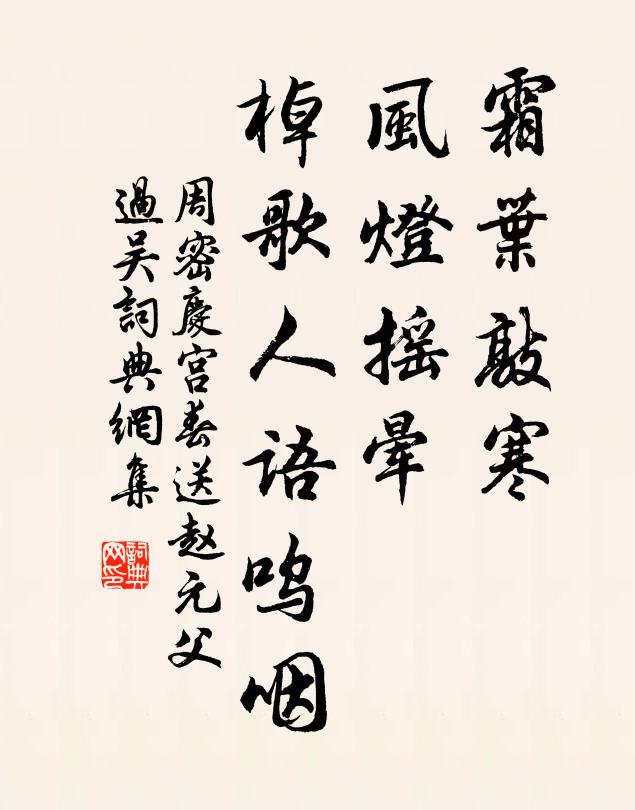 霜葉敲寒
風燈摇暈
棹歌人语呜咽
周密慶宫春送赵元父
過吴詞典網集
詞典网印